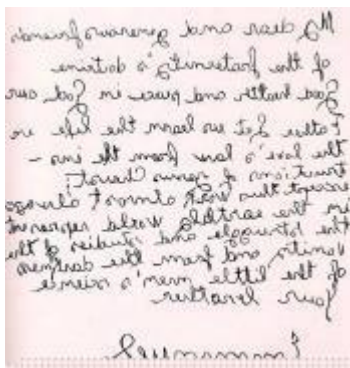 My dear and generous friends
of the fraternity's doctrine
Good health and peace in God our
Father. Let us learn the life in
the love's law from the ins-
tructions of Jesus Christ;
except this way almost always
in the earthly world represent
the struggle and studies of the
vanity and from the darkness
of the little men's science
Your brother
Emmanuel